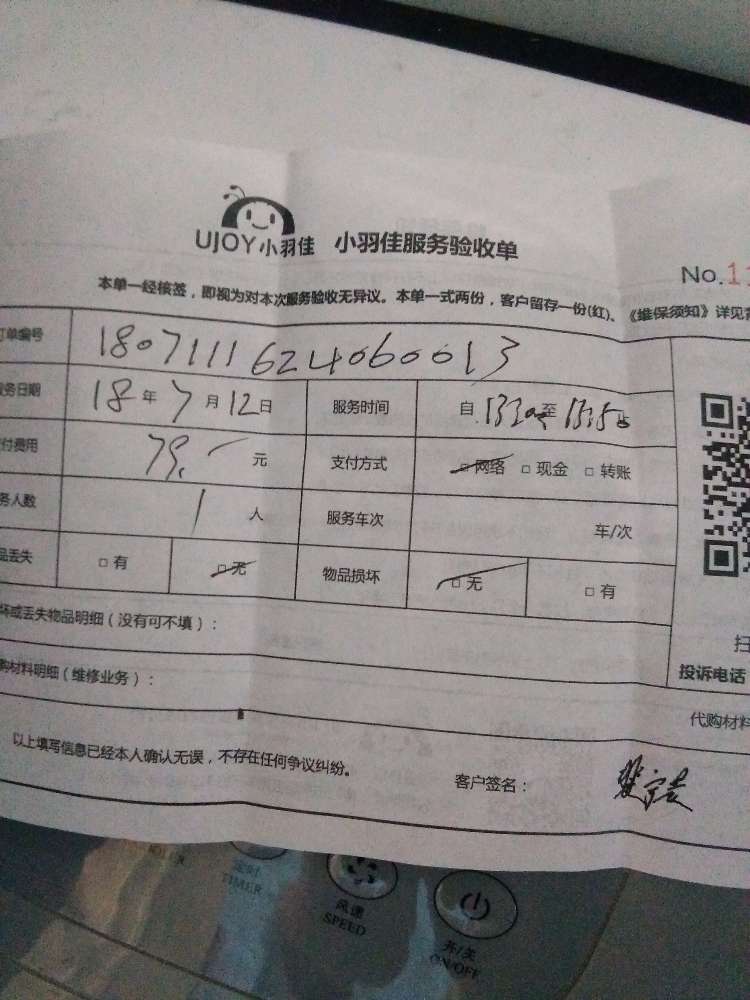 UJOY小羽佳 小羽佳服务验收单
No.1
本单一经核签，即视为对本次服务验收无异议。本单一式两份，客户留存一份(红)、《维保须知》详见
订单编号 1807111624060013
服务日期 18年7月12日 服务时间 自 13:20 至 15:50 止
付费用 79.- 元 支付方式 □网络 □现金 □转账
务人数 1 人 服务车次 车/次
品丢失 □有 □无 物品损坏 □无 □有
坏或丢失物品明细（没有可不填）：
扫
购材料明细（维修业务）：
投诉电话
代购材料
以上填写信息已经本人确认无误，不存在任何争议纠纷。
客户签名：
定时 风速 开/关
TIMER SPEED ON/OFF